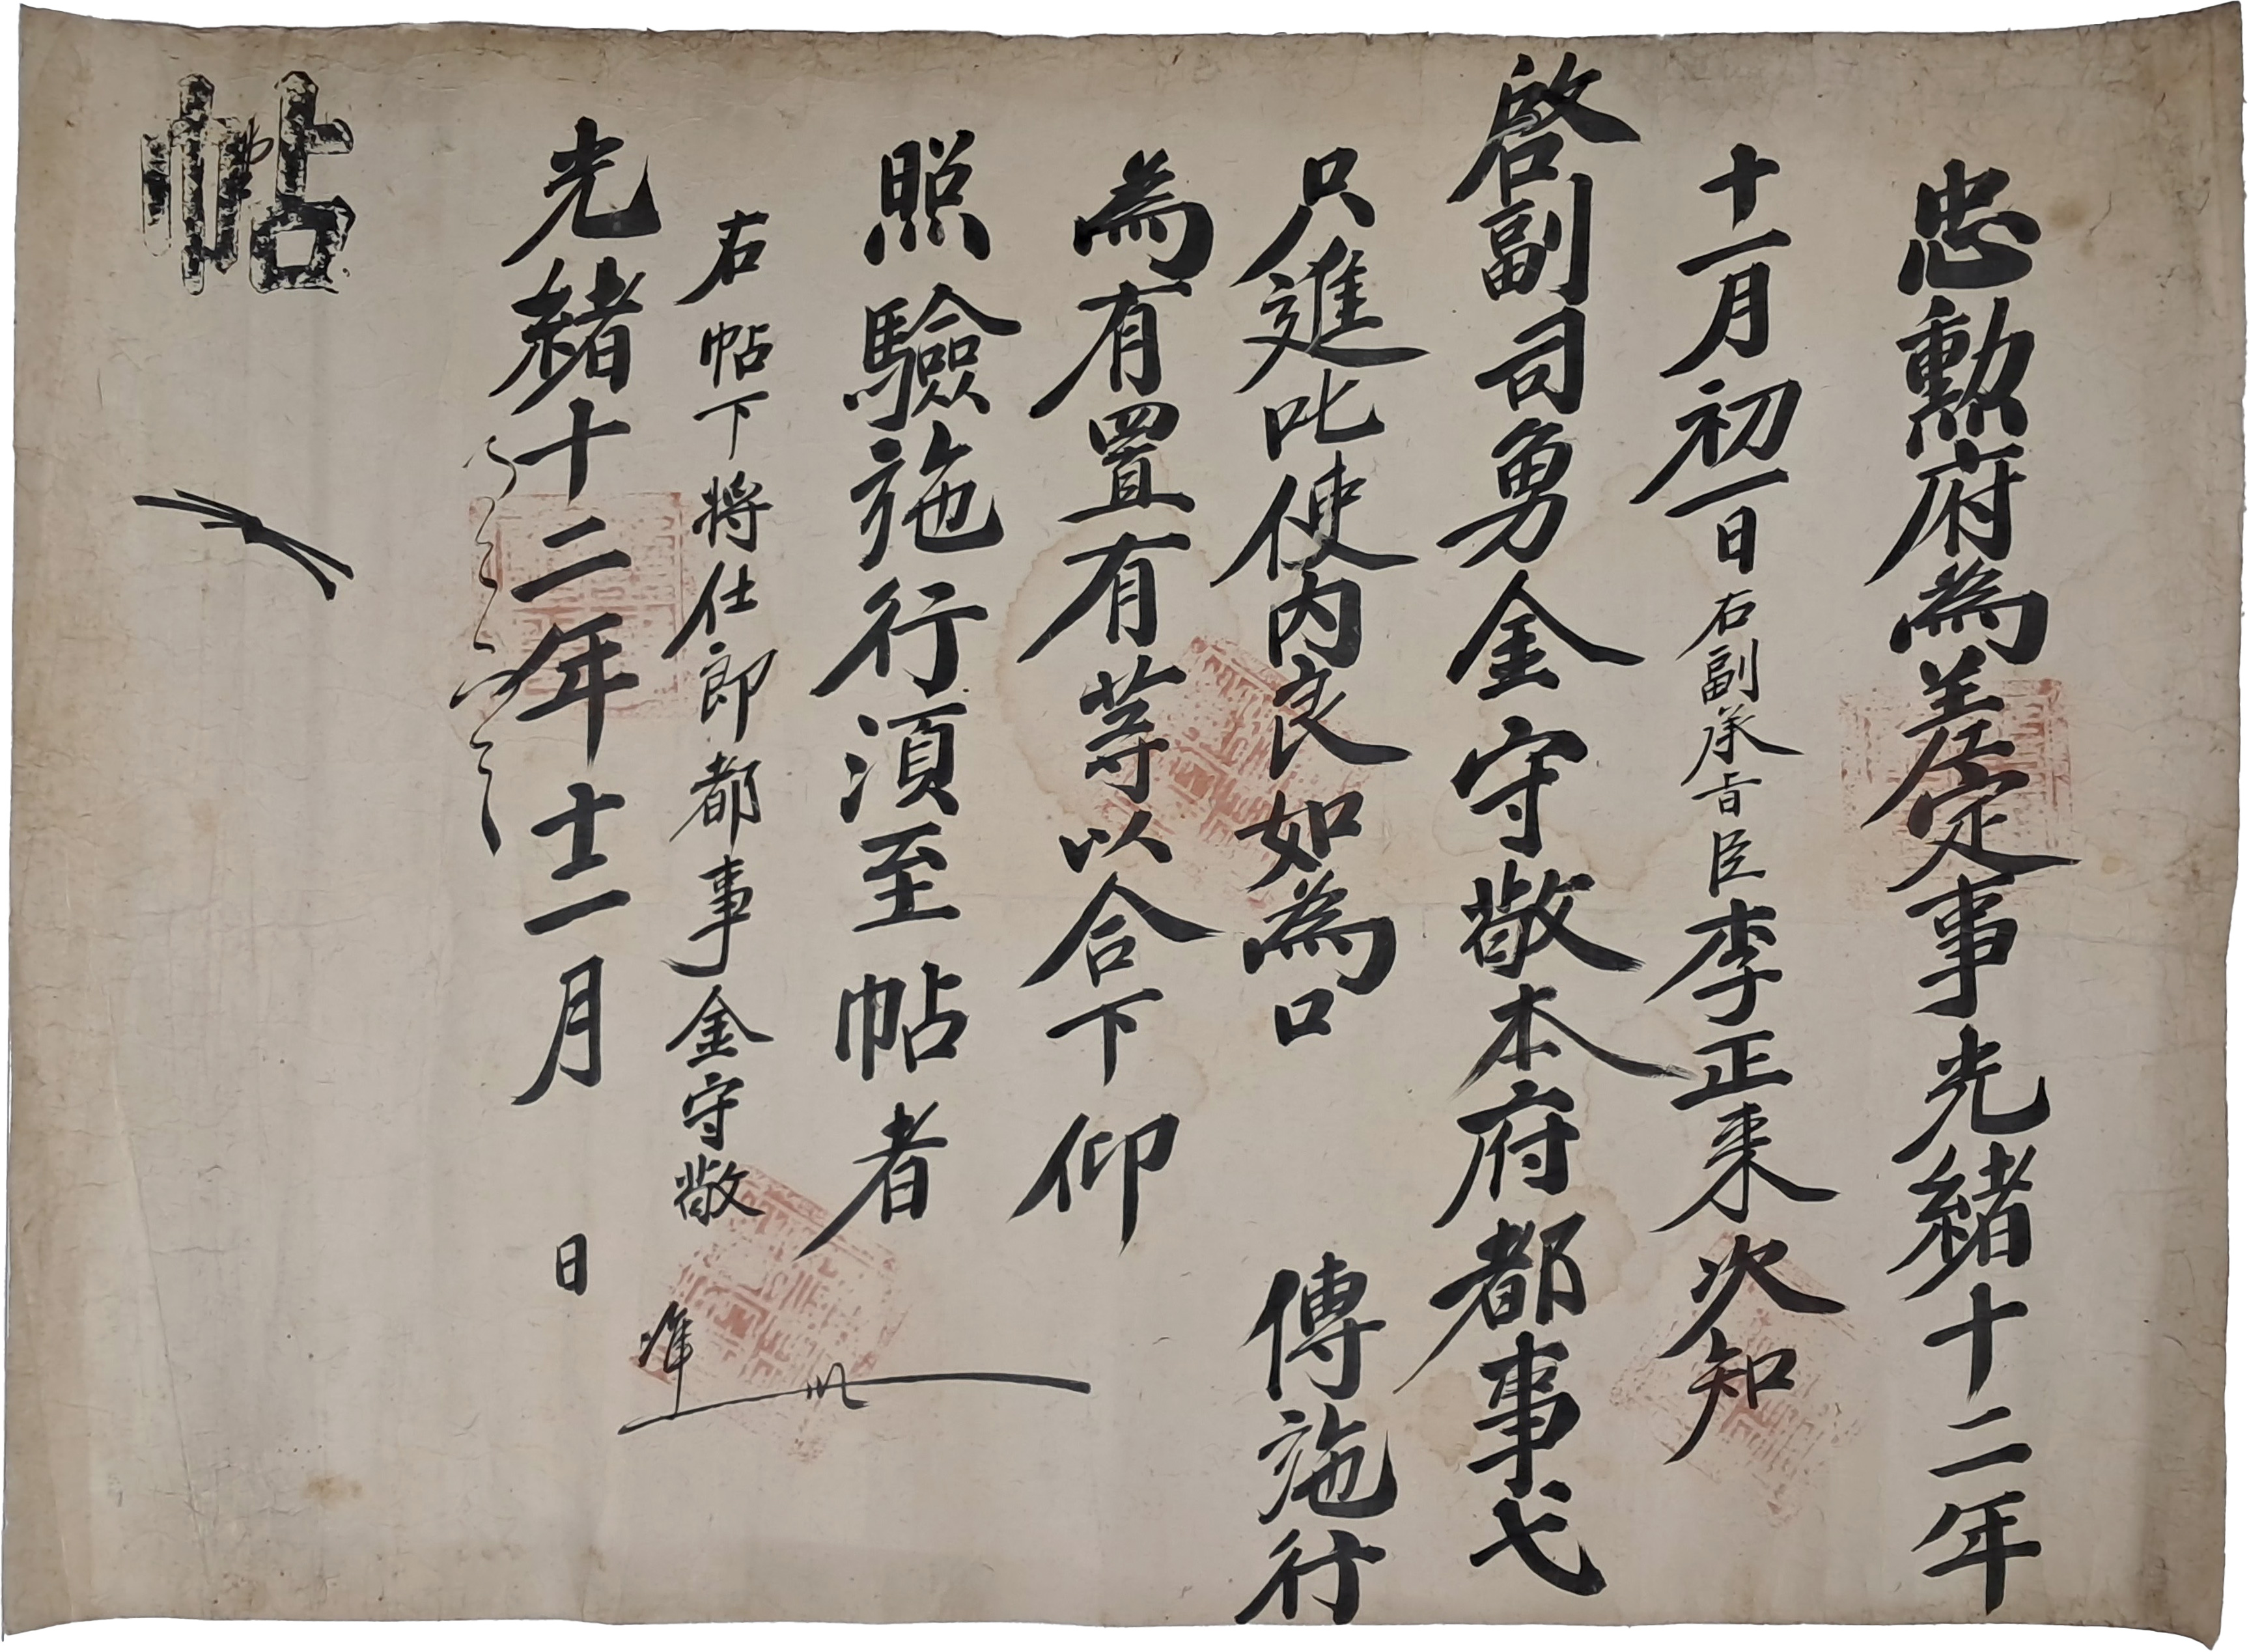 忠勳府為差定事光緒十二年
十一月初一日右副承旨臣李正来次知
啓副司勇金守敬本府都事弋
只進叱使內良如為口 傳施行
為有置有等以合下仰
照驗施行須至帖者
右帖下將仕郎都事金守敬 準
光緒十二年十一月 日
帖